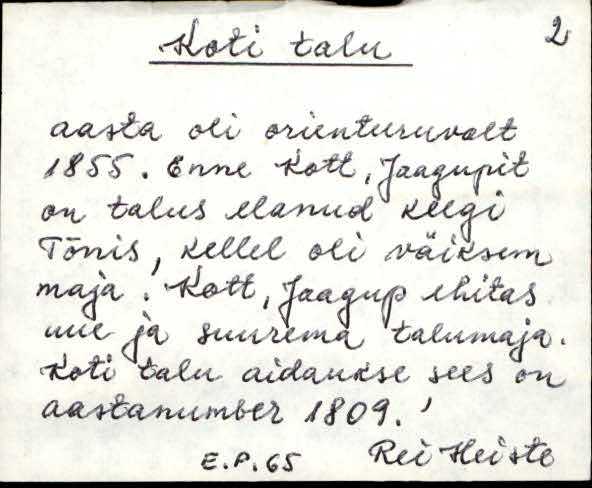 Koti talu 2
aasta oli orienturuvalt
1855. Enne Kott, Jaagupit
on talus elanud keegi
Tõnis, kellel oli väiksem
maja. Kott, Jaagup ehitas
uue ja suurema talumaja.
Koti talu aidaukse sees on
aastanumber 1809.!
E.P.65 Rei Heiste